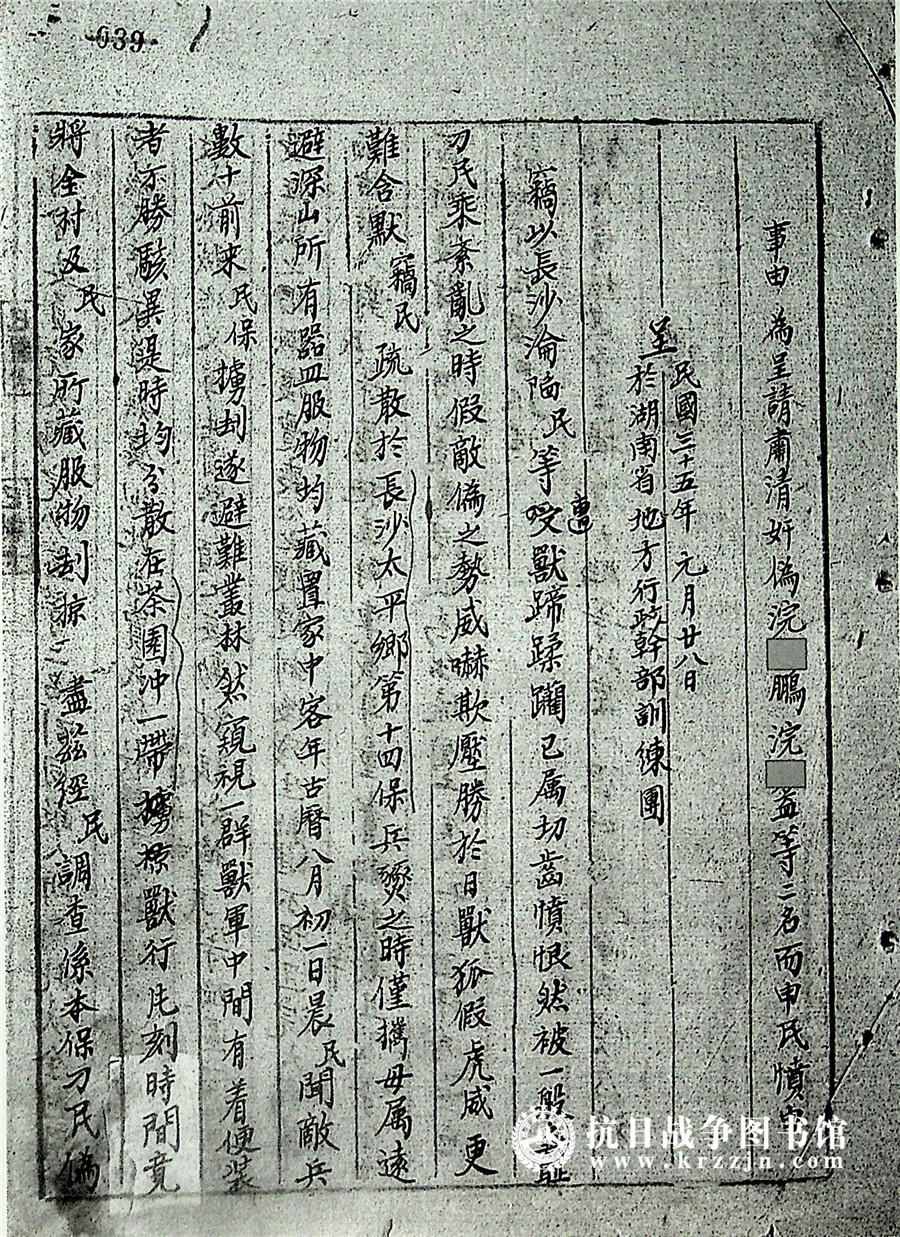 -039-
事由 為呈請肅清奸偽浣 鵬浣 益等二名而申民憤由
民國三十五年 元月廿八日
呈於湖南省地方行政幹部訓練團
竊以長沙淪陷民等受遭獸蹄蹂躪已属切齒憤恨然被一般
刁民乘紊亂之時假敵偽之勢威嚇欺壓勝於日獸狐假虎威更
難含默竊民疏散於長沙太平鄉第十四保兵燹之時僅攜母属遠
避深山所有器皿服物均藏置家中客年古曆八月初一日晨民聞敵兵
數十前来民保擄刦遂避難叢林然窺視一群獸軍中間有着便裝
者不勝駭異湜時均分散在茶園冲一帶擄掠獸行片刻時間竟
將全村及民家所藏服物刦掠二盡茲經民調查係本保刁民偽
抗日战争图书馆
www.krzzjn.com